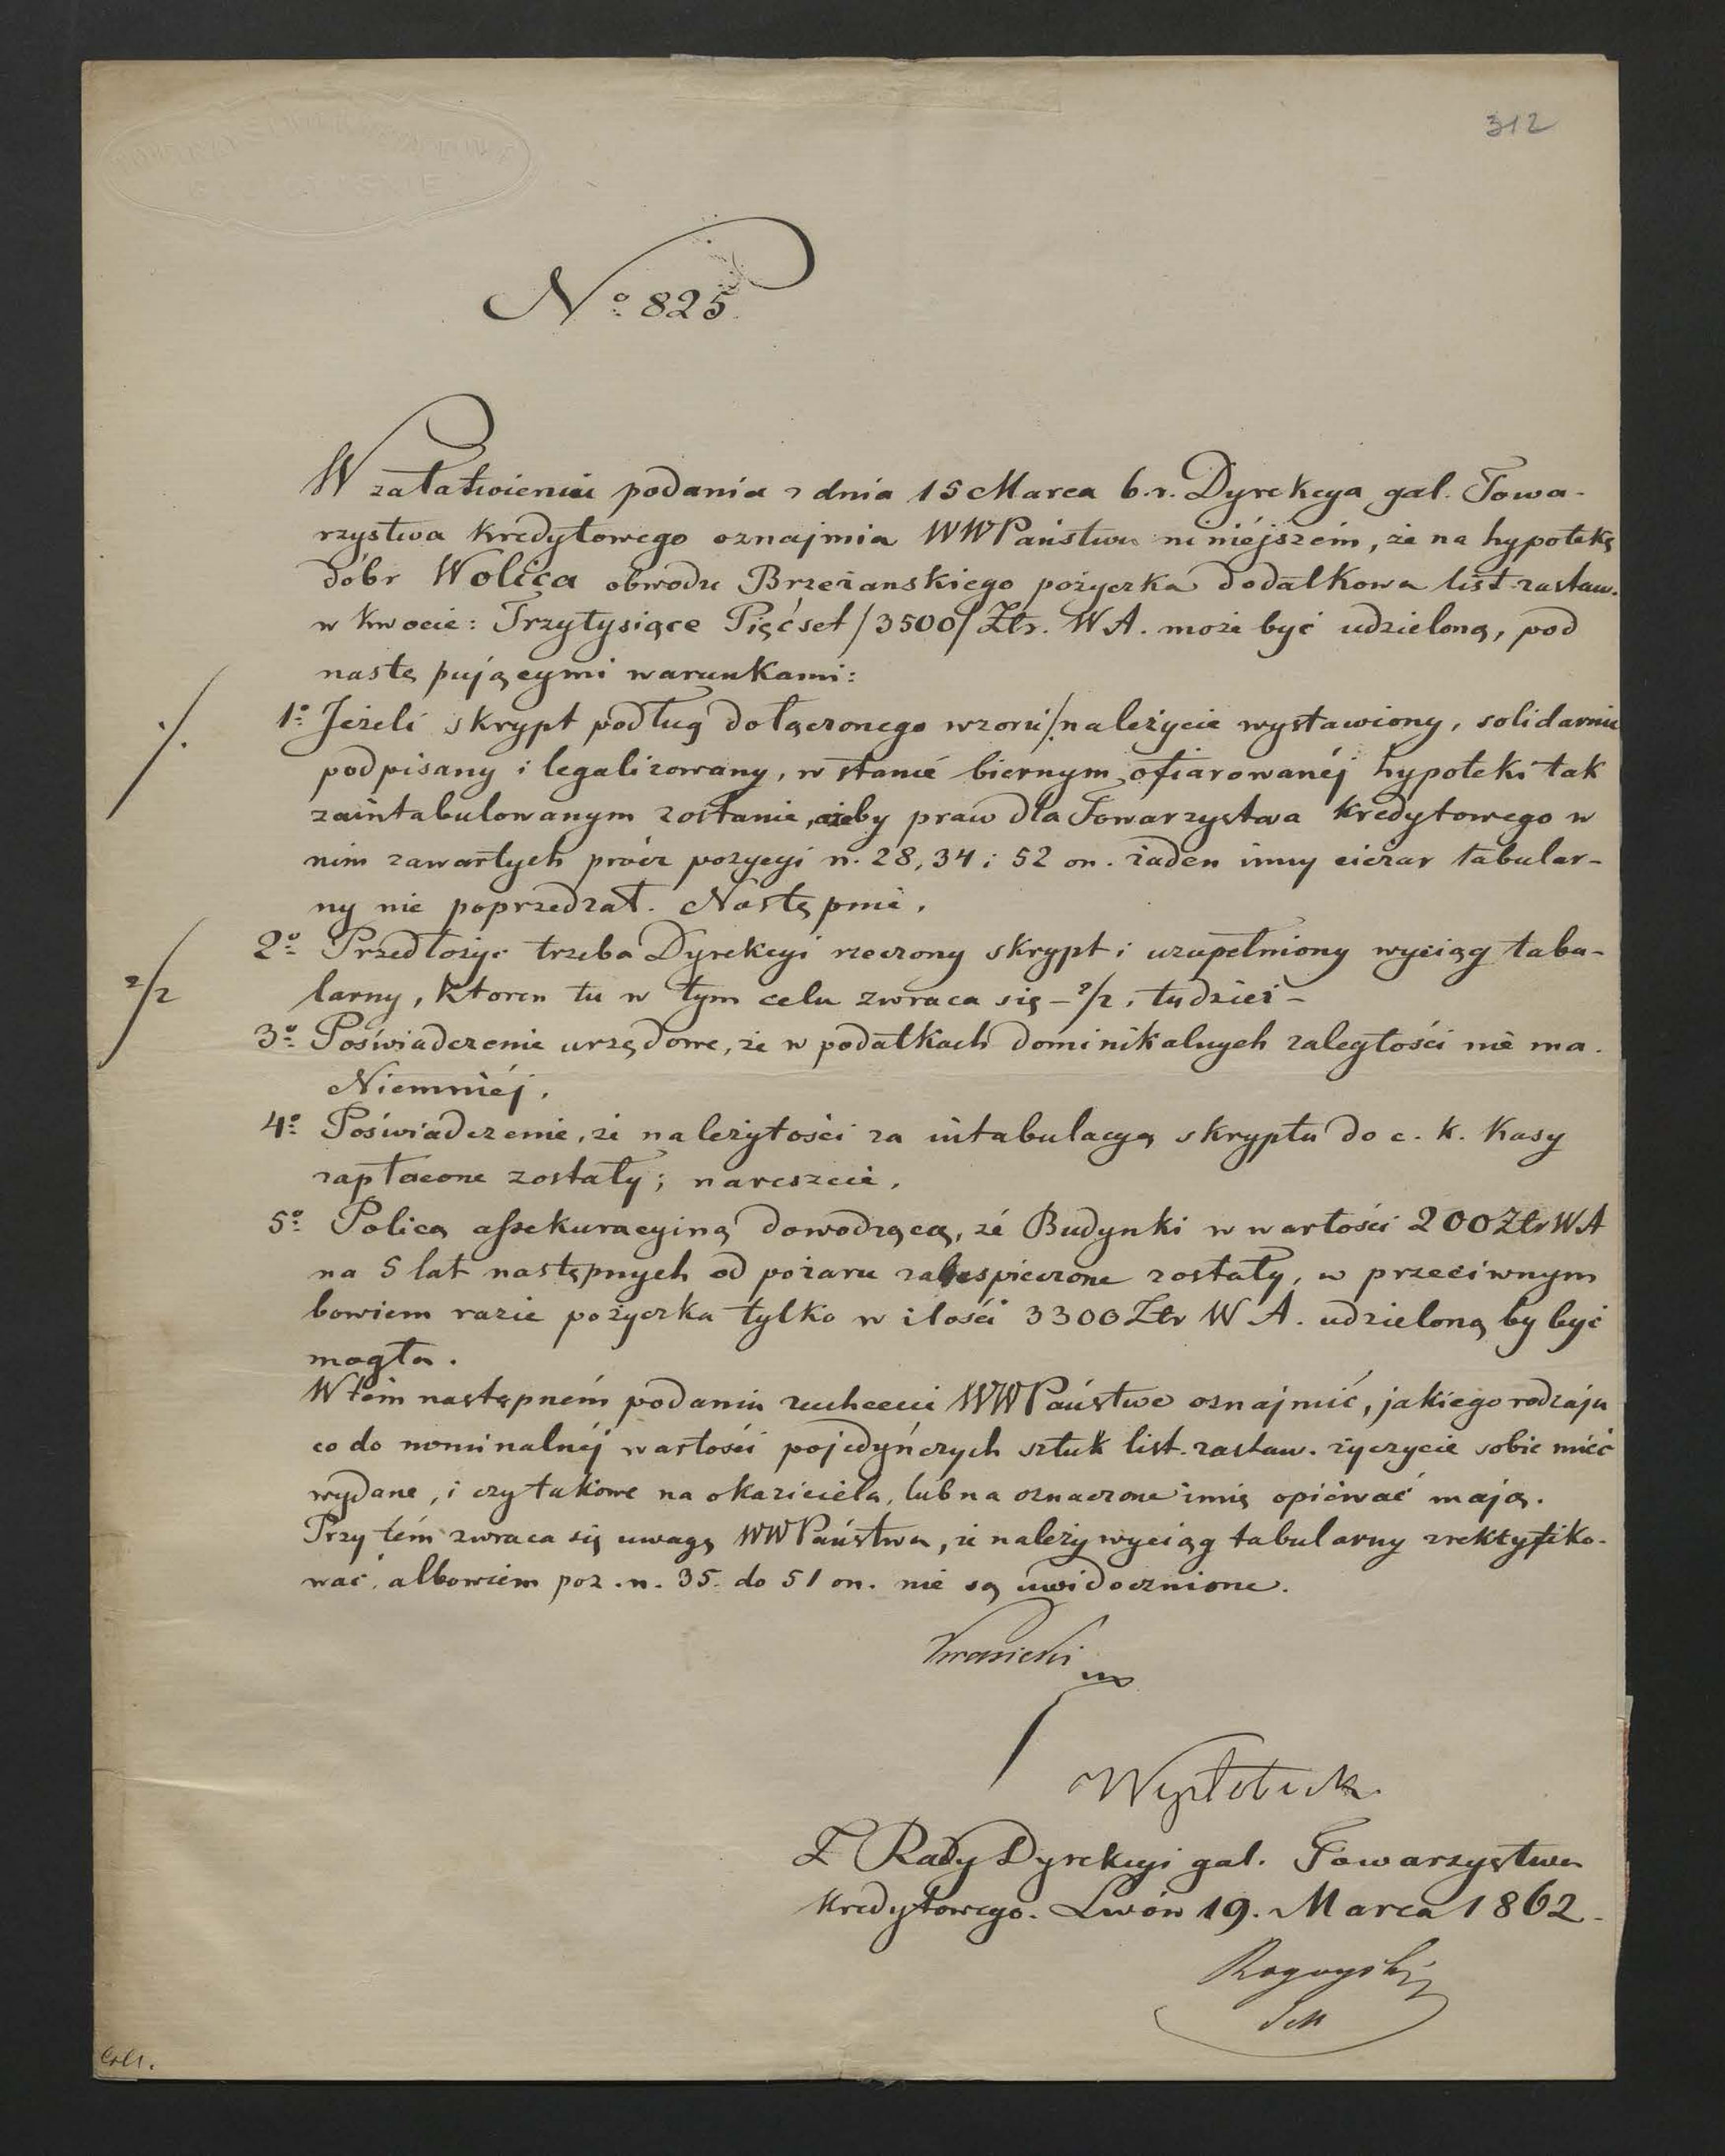 312
No 825.
W załatwieniu podania z dnia 15 Marca b.r. Dyrekcya gal. Towa-
rzystwa kredytowego oznajmia WWPaństwu niniéjszém, że na hypotekę
dóbr Wolica obwodu Brzeżanskiego pożyczka dodatkowa list. zastaw.
w kwocie: Trzytysiące Pięćset /3500/ Złr. WA. może być udzieloną, pod
następującymi warunkami:
1o Jeżeli skrypt podług dołączonego wzoru /. należycie wystawiony, solidarnie
podpisany i legalizowany, w stanie biernym ofiarowanéj hypoteki tak
zaintabulowanym zostanie, ażeby praw dla Towarzystwa kredytowego w
nim zawartych prócz pozycyi n. 28, 34 i 52 on. żaden inny ciężar tabular-
ny nie poprzedzał. Następnie,
2o Przedłożyc trzeba Dyrekcyi rzeczony skrypt i uzupełniony wyciąg tabu-
larny, ktoren tu w tym celu zwraca się – 2/2, tudzież –
3o Poświadczenie urzędowe, że w podatkach dominikalnych zaległości nie ma.
Niemniéj,
4o Poświadczenie, że należytości za intabulacyą skryptu do c. k. Kasy
zapłacone zostały; nareszcie,
5o Policą assekuracyiną dowodzącą, że Budynki w wartości 200 Złr WA
na 5 lat następnych od pożaru zabespieczone zostały, w przeciwnym
bowiem razie pożyczka tylko w ilości 3300 Złr W A. udzieloną by być
mogła.
W tém następném podaniu zechcecie WWPaństwo oznajmić, jakiego rodzaju
co do nominalnéj wartości pojedyńczych sztuk list. zastaw. życzycie sobie mieć
wydane, i czy takowe na okaziciela, lub na oznaczone imię opiéwać mają.
Przy tém zwraca się uwagę WWPaństwa, że należy wyciąg tabularny zrektyfiko-
wać, albowiem poz. n. 35. do 51 on. nie są uwidocznione.
Krasicki
Z Rady Dyrekcyi gal. Towarzystwa
kredytowego. Lwów 19. Marca 1862.
/.
2/2